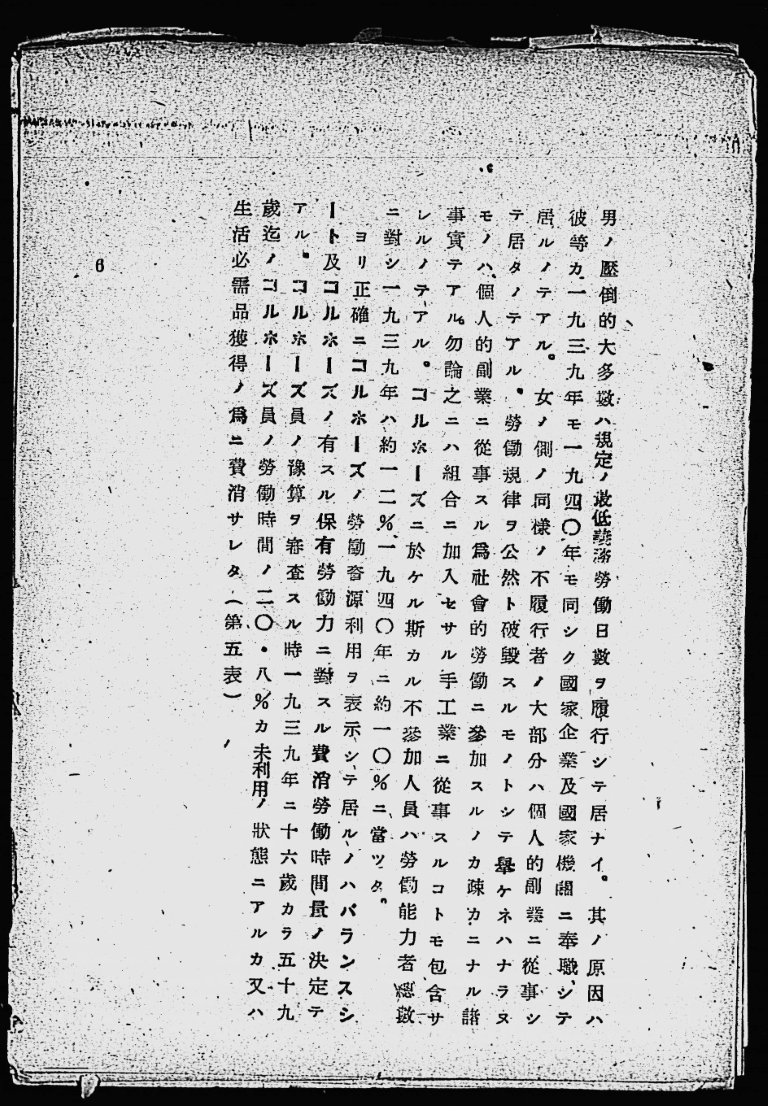 男ノ壓倒的大多數ハ規定ノ最低義務勞働日數ヲ履行シテ居ナイ。其ノ原因ハ
彼等カ一九三九年モ一九四〇年モ同シク國家企業及國家機關ニ奉職シテ
居ルノテアル。女ノ側ノ同樣ノ不履行者ノ大部分ハ個人的副業ニ從事シ
テ居タノテアル。勞働規律ヲ公然ト破毀スルモノトシテ擧ケネハナラヌ
モノハ、個人的副業ニ從事スル爲社會的勞働ニ參加スルノカ疎カニナル諸
事實テアル。勿論之ニハ組合ニ加入セサル手工業ニ從事スルコトモ包含サ
レルノテアル。コルホーズニ於ケル斯カル不參加人員ハ勞働能力者總數
ニ對シ一九三九年ハ約一二%、一九四〇年ニ約一〇%ニ當ツタ。
ヨリ正確ニコルホーズノ勞働資源利用ヲ表示シテ居ルノハバランスシ
ート及コルホーズノ有スル保有勞働力ニ對スル費消勞働時間量ノ決定テ
アル。コルホーズ員ノ豫算ヲ審査スル時一九三九年ニ十六歲カラ五十九
歲迄ノコルホーズ員ノ勞働時間ノ二〇・八%カ未利用ノ狀態ニアルカ又ハ
生活必需品獲得ノ爲ニ費消サレタ(第五表)
6